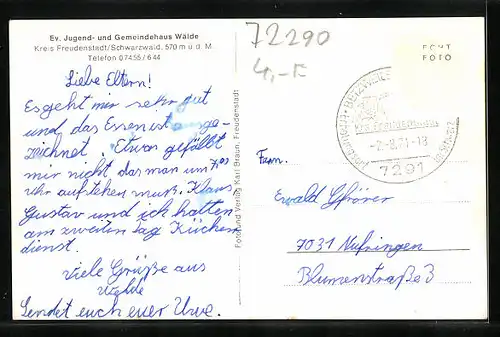 Ev. Jugend- und Gemeindehaus Wälde
Kreis Freudenstadt/Schwarzwald. 570 m ü. d. M
Telefon 07455/644
72290
4,-E
ECHT
FOTO
Liebe Eltern!
Es geht mir sehr gut
und das Essen ist ausge-
zeichnet. Etwas gefällt
mir nicht das man um 7,00
Uhr aufstehen muß. Klaus,
Gustav und ich hatten
am zweiten Tag Küchen
dienst.
Viele Grüße aus
Wälde
Sendet euch euer Uwe.
Foto und Verlag Karl Braun, Freudenstadt
Krs Freudenstadt
7291
Fam.
Ewald Gfrörer
7031 Nufringen
Blumenstraße 3